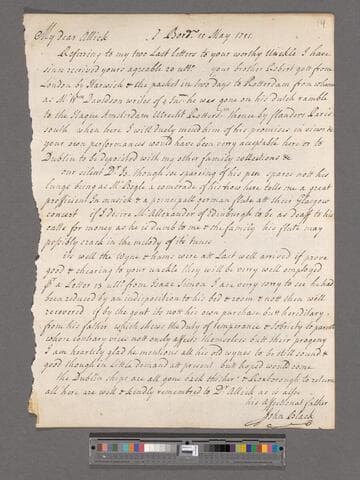 My dear Alleck
Bordx 10 May 1751.
Referring to my two Last letters to your worthy Unckle I have
sinn received yours agreable 20 ulto. your brother Robert gott from
London by Harwich & the packet in two days to Rotterdam from whom
as Mr Wm Davidson writes he was gone on his dutch ramble
to the Hague Amsterdam Utrecht Rotterd thence by flanders Paris
south when here I will duely mind him of his promises in view &
your own performances would have been very acceptable here or to
Dublin to be deposited with my other family collections &
our silent Dr B. though so sparing of his pen spares not his
lungs being as Mr Bogle a comerade of his now here tells me a great
proficient in musick & a principall german flute att their Glasgow
concert if I desire Mr Allexander of Edinburgh to be as deaf to his
calls for money as he is dumb to me & the family his flute may
possibly crack in the melody of its tunes
its well the wyne & hams were att Last well arrived if prove
good & chearing to your unckle they will be very well employed
p a Letter 19 ulto from Isaac Simon I am very sorry to see he had
been reduced by an indisposition to his bed & room & not then well
recovered if by the gout its not his own purchase but hereditary
from his father which shews the duty of temperance & sobriety to parents
where contrary vices not only affects themselves but their progeny
I am heartily glad he mentions all his old wynes to be still sound &
good though in little demand att present but hoped would come
the Dublin ships are all gone back thither & Roxborough to return
all here are well & kindly remembred to Dr Alleck as is also
his affectionat father
John Black